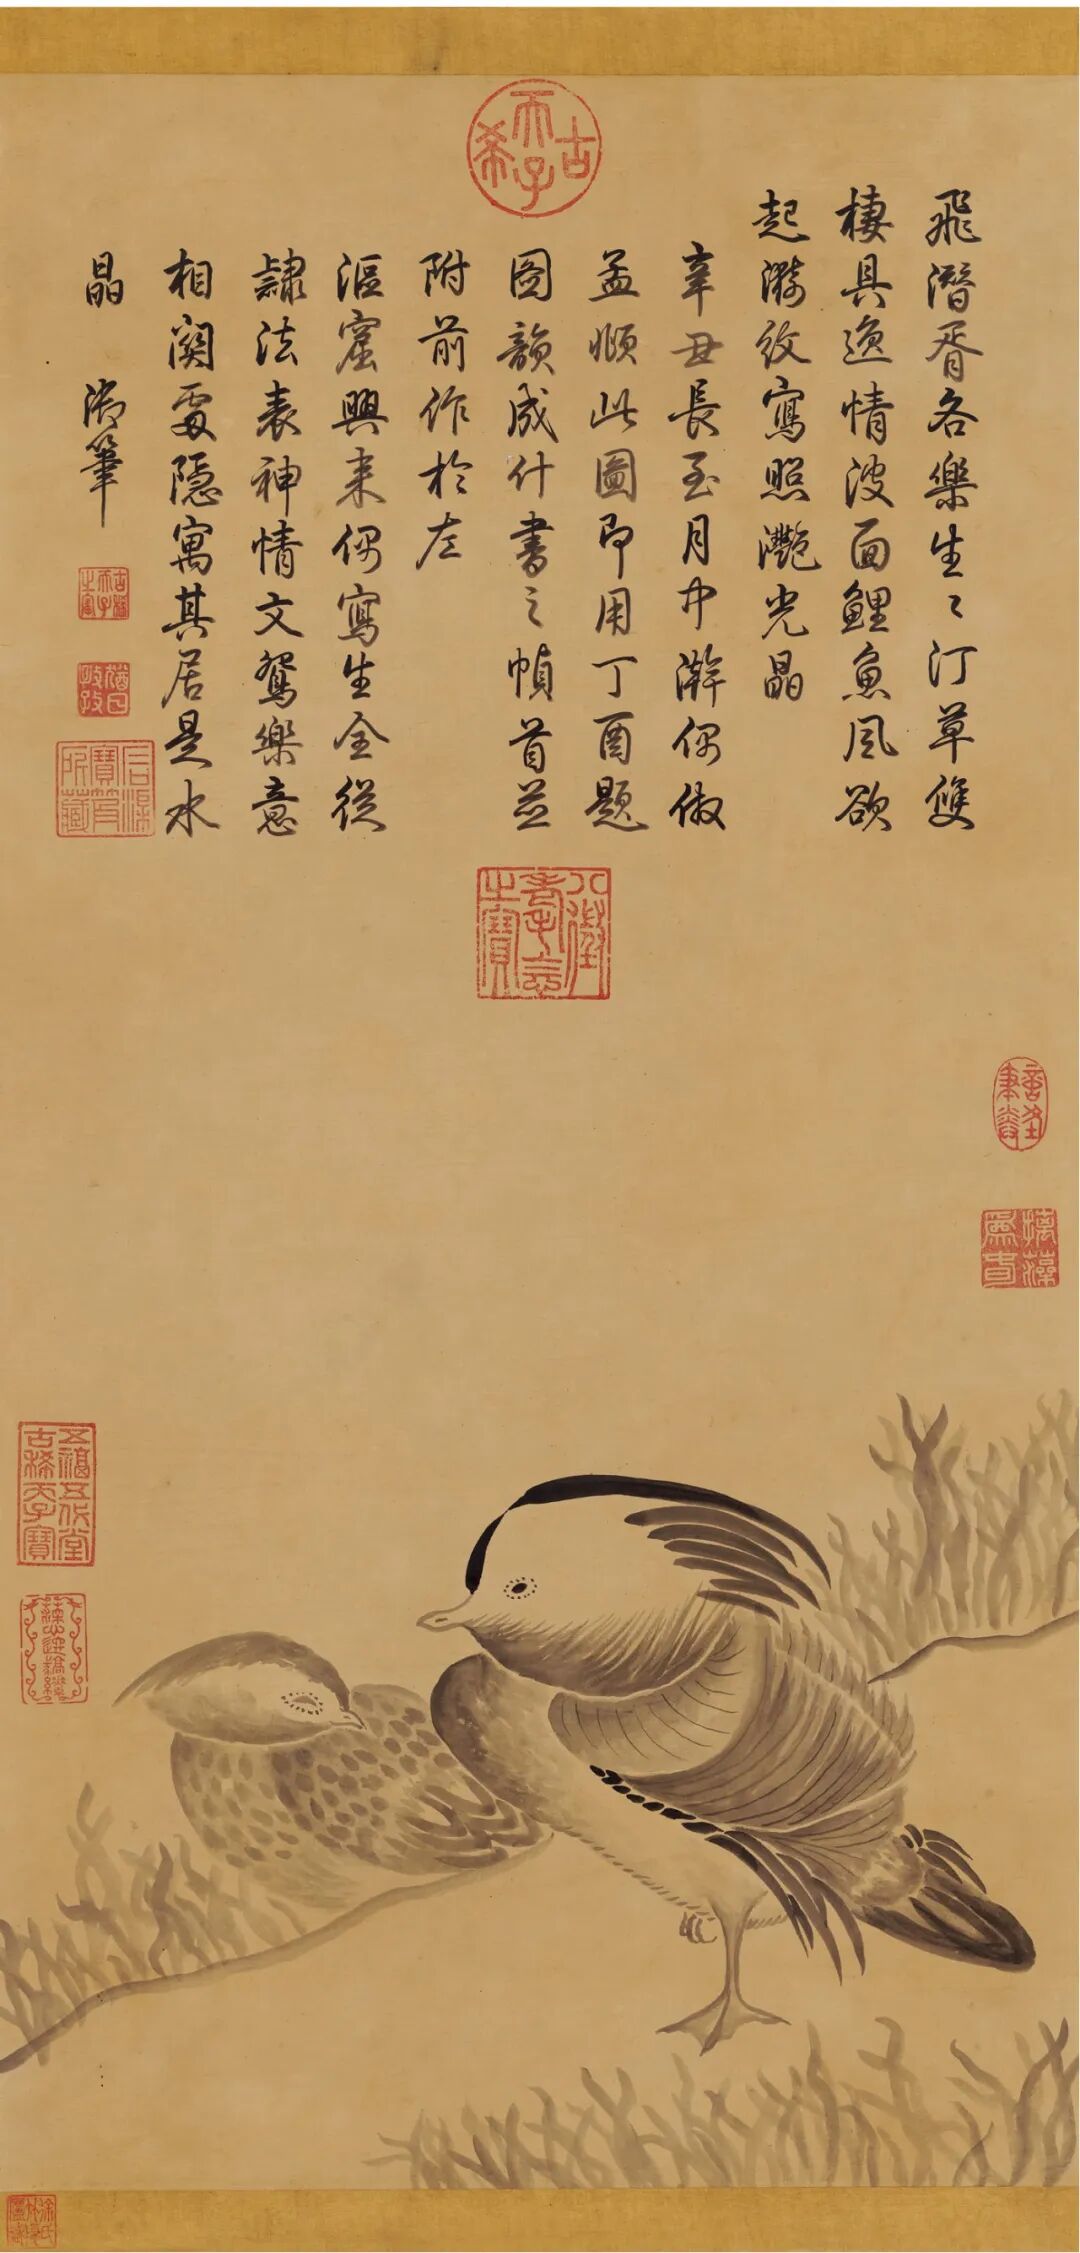 古希天子
飛潛胥各樂生〻汀草雙
棲具逸情波面鯉魚風欲
起漪紋寫照灩光晶
辛丑長至月中澣偶倣
孟頫此圖即用丁酉題
圖韻成什書之幀首並
附前作於左
漚興來偶寫生全從
隸法表神情文鴛樂意
相關處隱寓其居是水
晶 御筆
古稀天子之寶
猶日孜孜
石渠寶笈所藏
八徵耄念之寶
摛藻為春
五福五代堂古稀天子寶